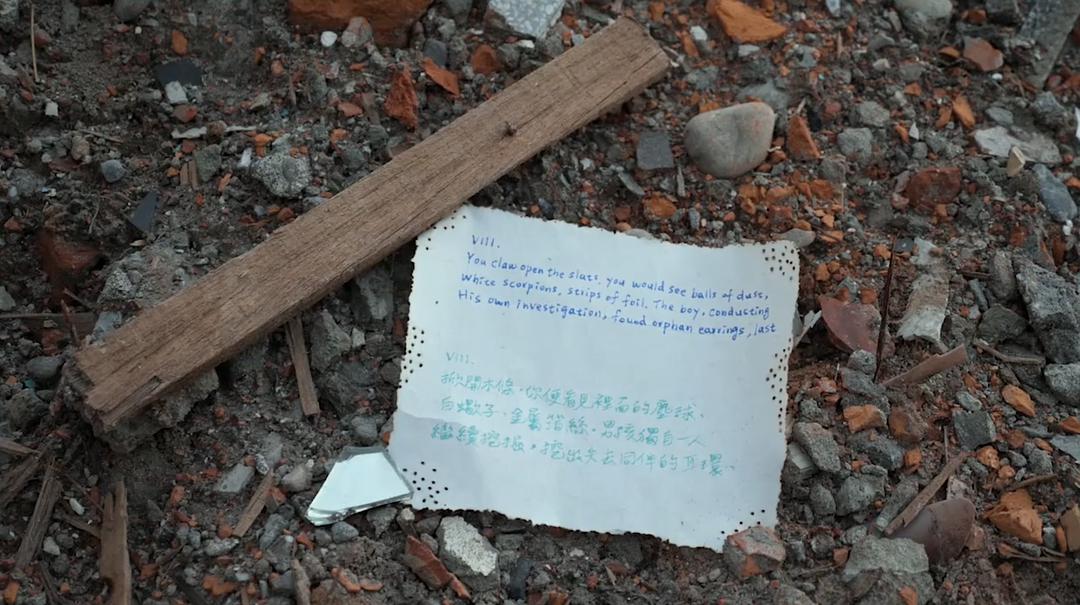 VIII.
You claw open the slats, you would see balls of dust,
White scorpions, strips of foil. The boy, conducting
His own investigation, found orphan earrings, last
VIII.
掀開木條，你便看見裡面的塵球、
白蠍子、金屬箔絲。男孩獨自一人
繼續挖掘，挖出失去同伴的耳環、